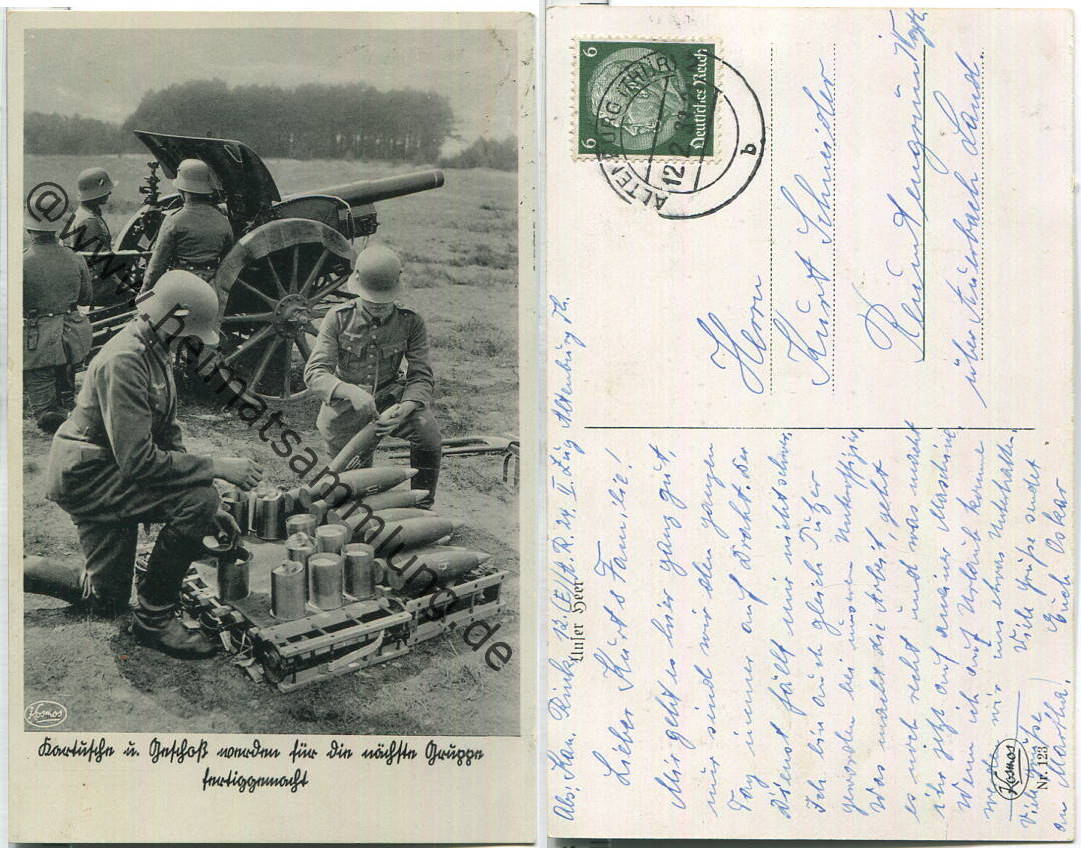 @
www.heimatsammlung.de
Kosmos
Kartusche u. Geschoß werden für die nächste Gruppe
fertiggemacht
6 6
Deutsches Reich
ALTENBURG (THÜR)
12.2
b
Herrn
Kurt Schneider
Rempesgrün Vogtl
über Auerbach Land.
Abs. Kan. Rink, 12.(E)/A.R. 24. II. Zug Altenburg Th.
Unser Heer
Lieber Kurt u. Familie!
Mir geht es hier ganz gut,
nur sind wir den ganzen
Tag immer auf Draht. Der
Dienst fällt mir nicht schwer,
Ich bin auch gleich
geworden bei unseren
Was macht die Arbeit, geht
es noch recht und was macht
ihr jetzt auf meiner Maschine,
Wenn ich auf Urlaub komme
werden wir uns etwas unterhalten.
Viele Grüße sendet
Euch Oskar
Viele Grüße
an Martha.
Kosmos
Nr. 123